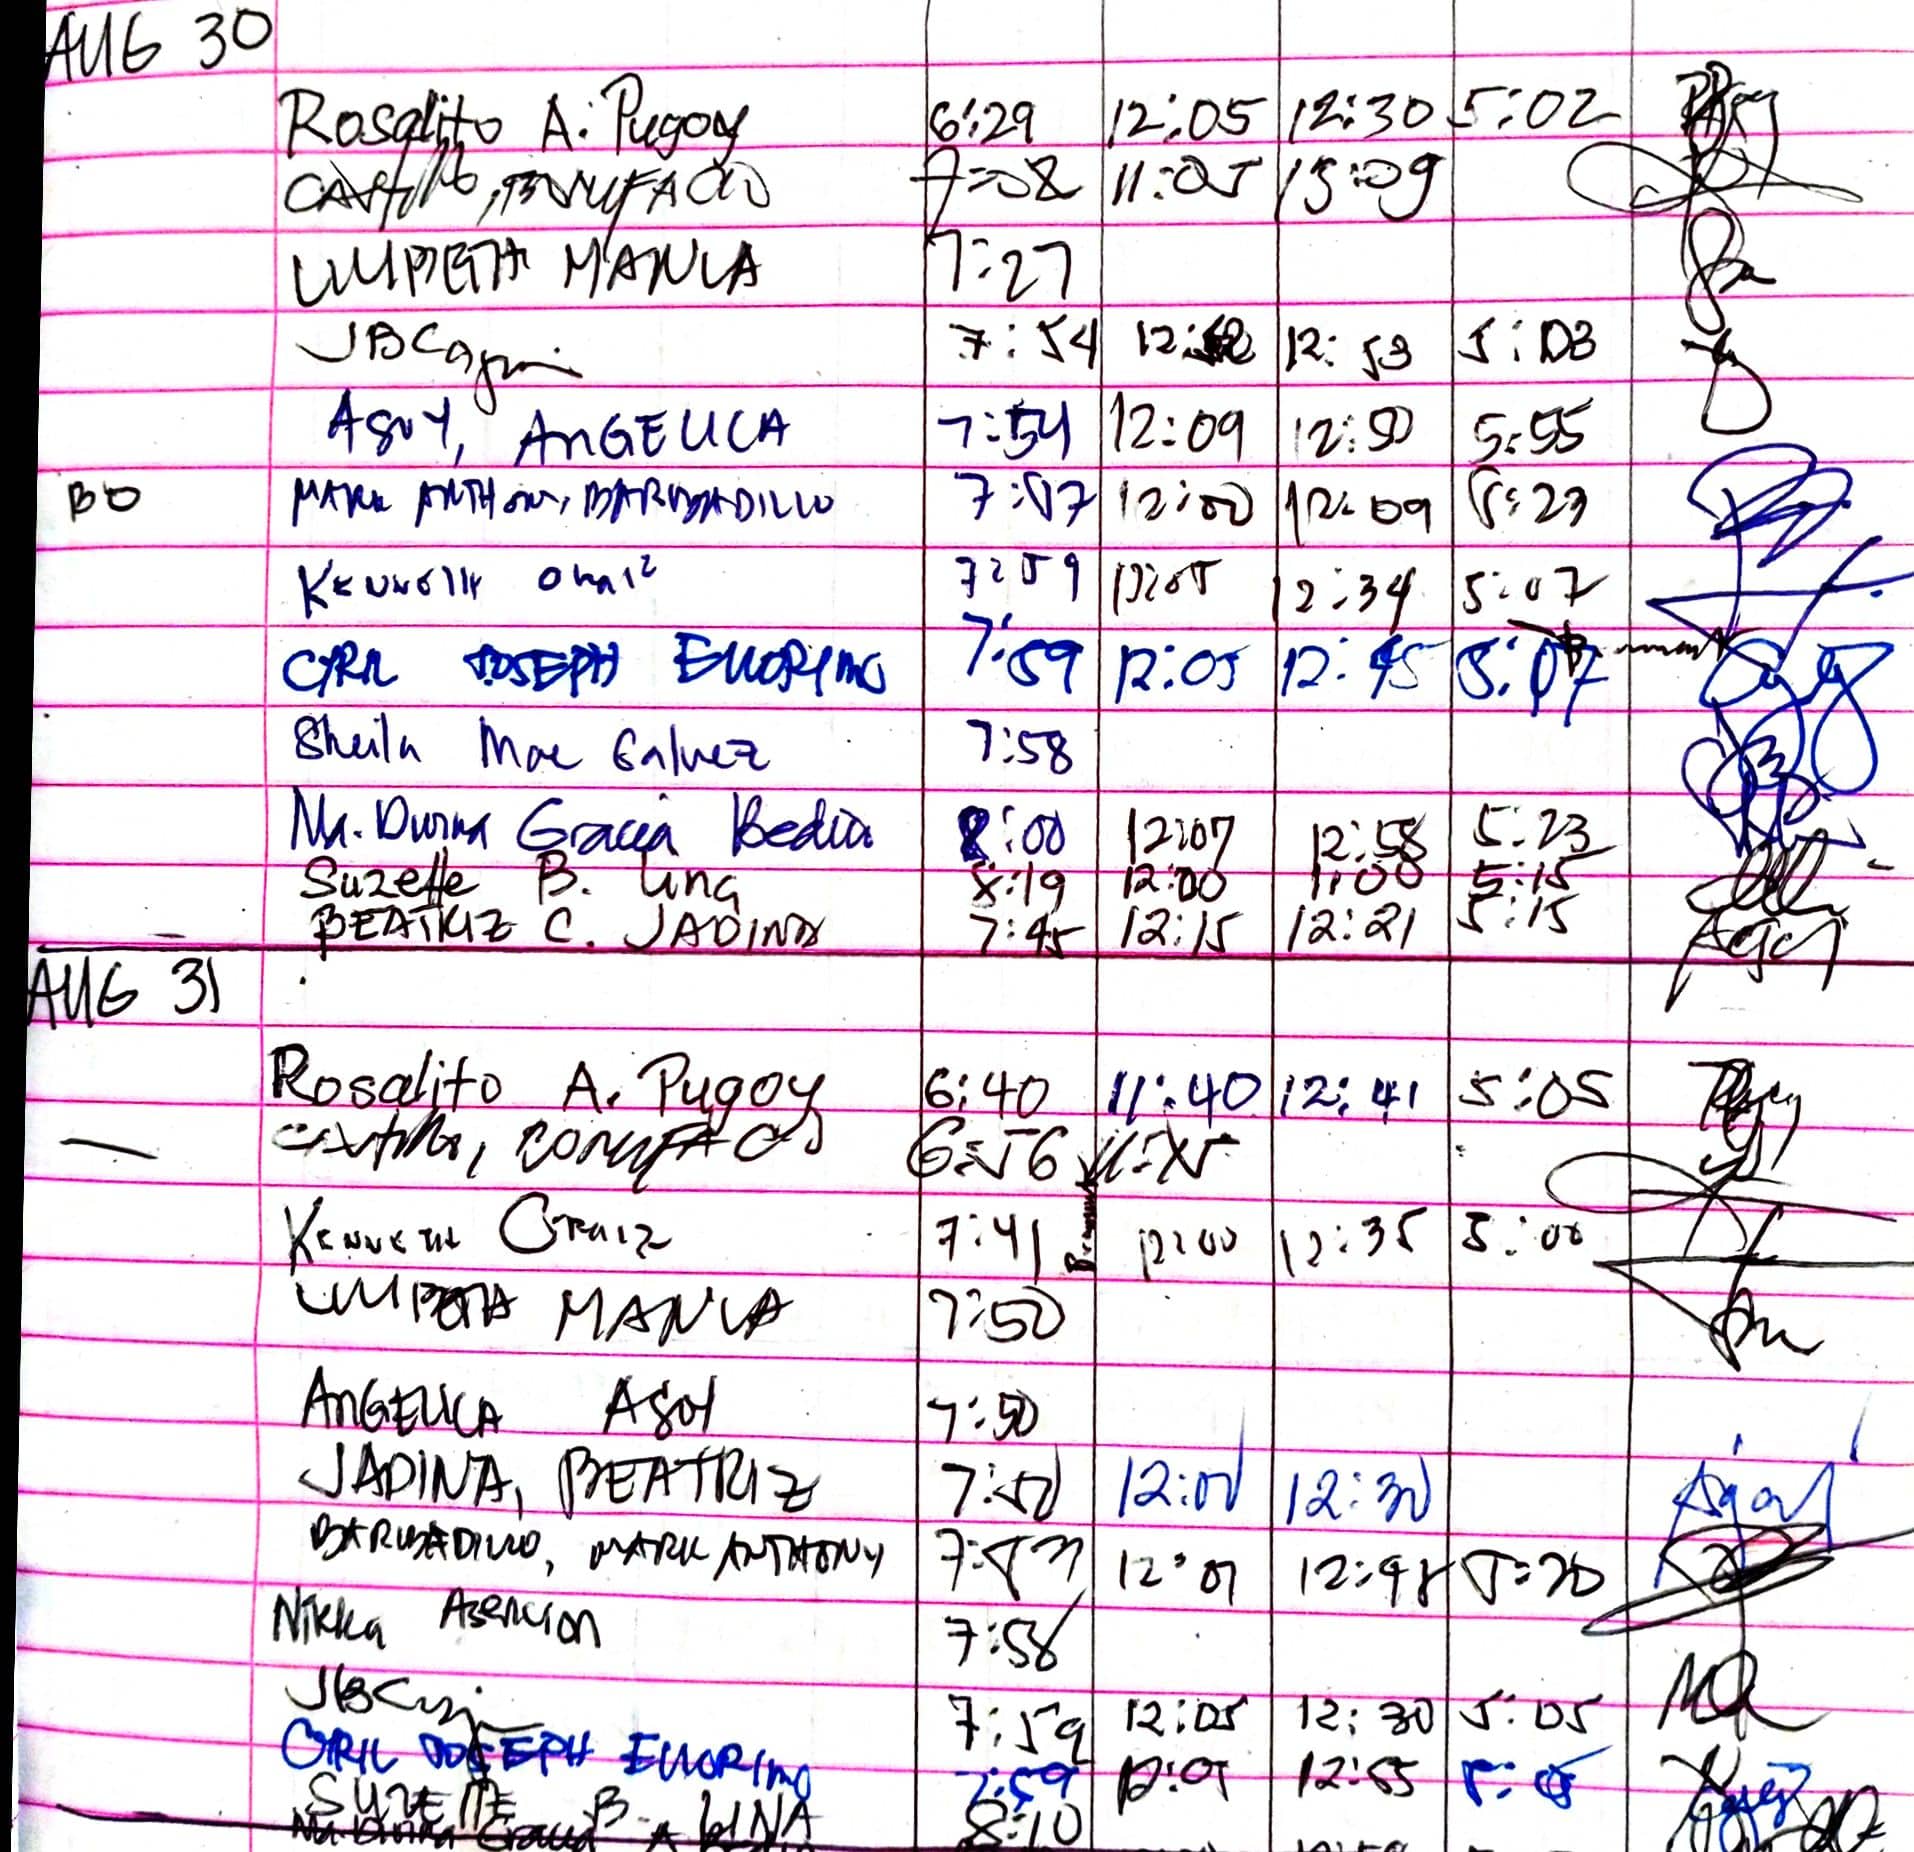 AUG 30
Rosalito A. Pugoy 6:29 12:05 12:30 5:02
7:08 11:05
MANLA 7:27
7:54 12:53 5:03
ASOY, ANGELICA 7:54 12:09 12:50 5:55
BO MARK ANTHONY BARBADILLO 7:57 12:00 12:09 5:23
KENNETH 7:59 12:05 12:34 5:07
CYRIL JOSEPH ELLORIMO 7:59 12:05 12:45 5:07
Sheila Mae Galvez 7:58
Ma. Divina Gracia Bedia 8:00 12:07 12:58 5:23
Suzette B. Lina 8:19 12:00 1:00 5:15
BEATRIZ C. JADINA 7:45 12:15 12:21 5:15
AUG 31
Rosalito A. Pugoy 6:40 11:40 12:41 5:05
6:56
KENNETH 7:41 12:00 12:35 5:00
MANLA 7:50
ANGELICA ASOY 7:50
JADINA, BEATRIZ 7:50 12:00 12:30
BARBADILLO, MARK ANTHONY 7:53 12:01 12:48 5:20
Nikka Asencion 7:58
7:59 12:05 12:30 5:05
CYRIL JOSEPH ELLORIMO 7:59 12:05 12:55
SUZETTE B. LINA 8:10
Ma. Divina Gracia